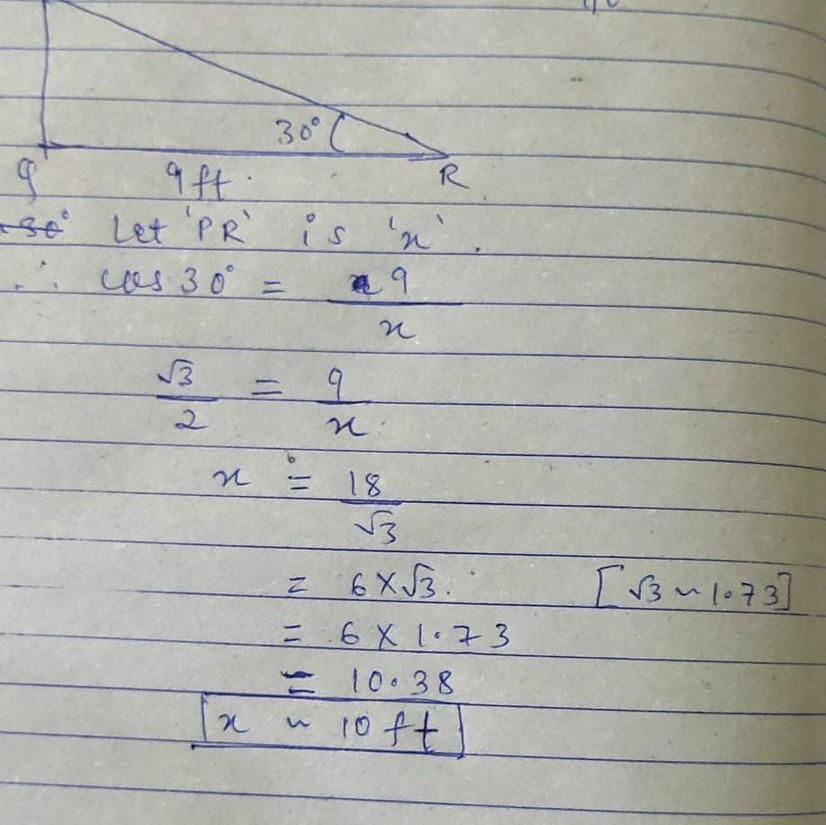 30°
Q 9 ft. R
Let 'PR' is 'x'.
∴ cos 30° = 9/x
√3/2 = 9/x
x = 18/√3
= 6×√3. [√3 ~ 1.73]
= 6×1.73
= 10.38
x ~ 10 ft